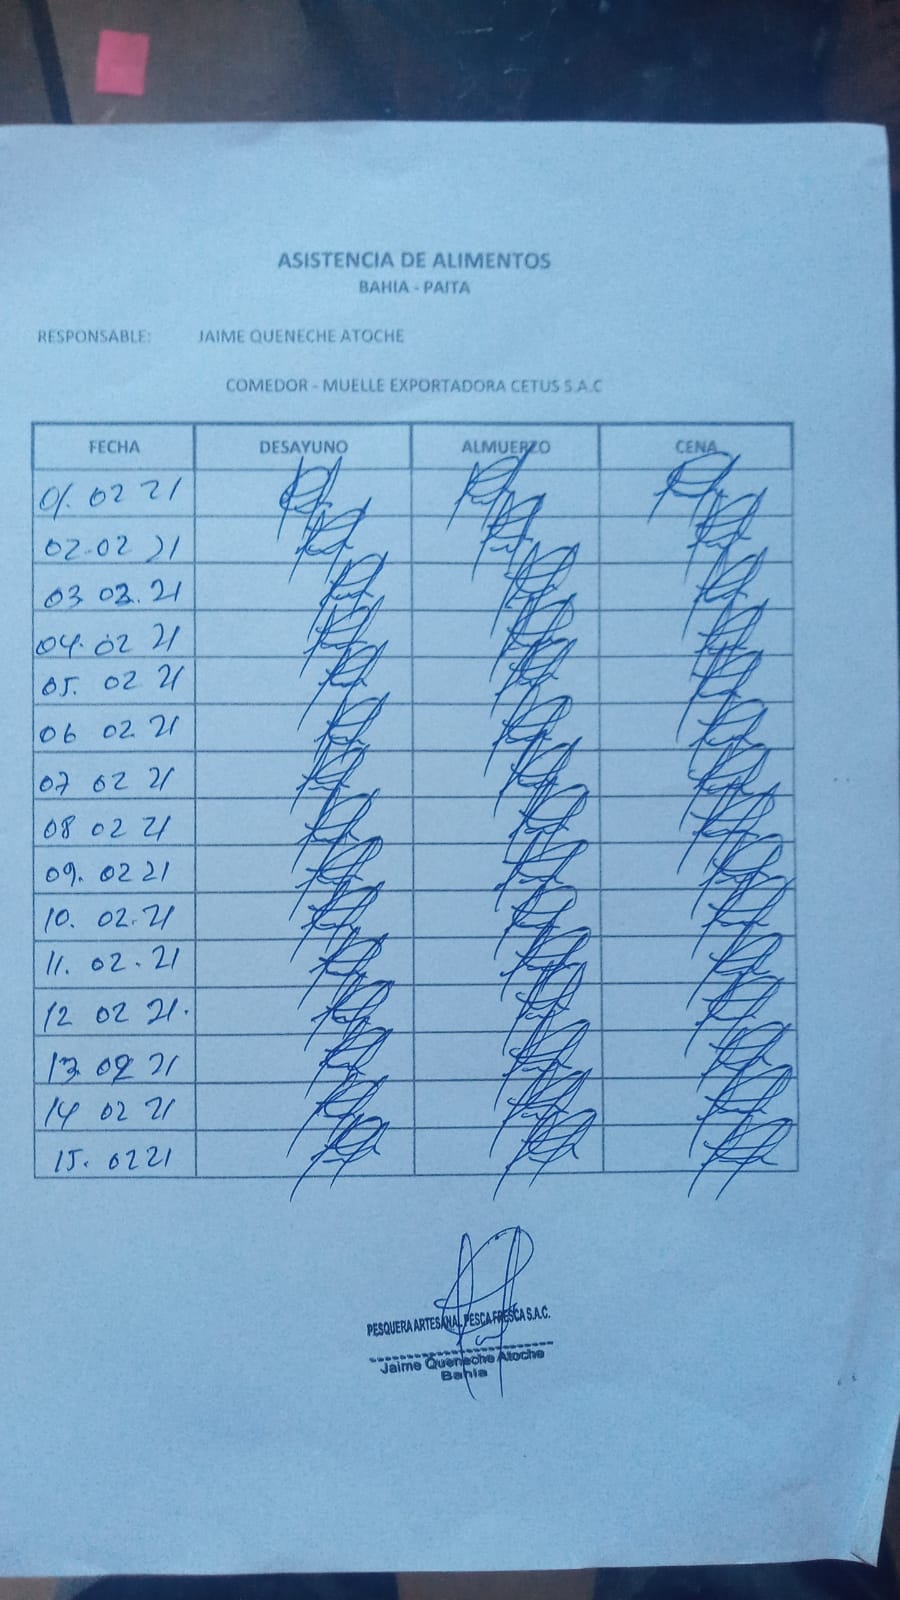 ASISTENCIA DE ALIMENTOS
BAHIA - PAITA
RESPONSABLE: JAIME QUENECHE ATOCHE
COMEDOR - MUELLE EXPORTADORA CETUS S.A.C
FECHA DESAYUNO ALMUERZO CENA
01. 02 21
02-02 21
03 02. 21
04. 02 21
05. 02 21
06 02. 21
07 02 21
08 02 21
09. 02 21
10. 02. 21
11. 02. 21
12 02 21.
13 02 21
14 02 21
15. 02 21
PESQUERA ARTESANAL PESCA FRESCA S.A.C.
Jaime Queneche Atoche
Bahia